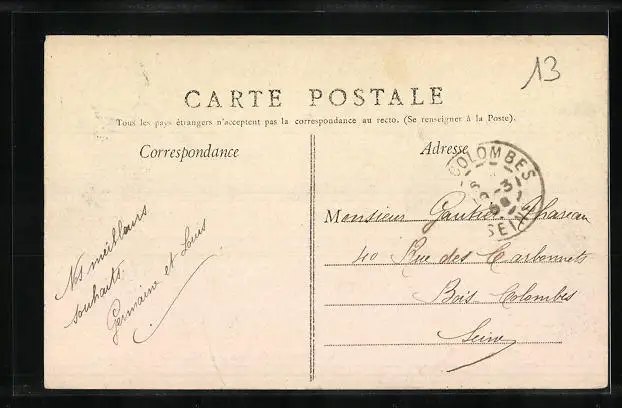 13
CARTE POSTALE
Tous les pays étrangers n'acceptent pas la correspondance au recto. (Se renseigner à la Poste).
Correspondance
Adresse
COLOMBES
SEINE
Nos meilleurs
souhaits.
Germaine et Louis
Monsieur Gautier
40 Rue des Carbonnets
Bois-Colombes
Seine